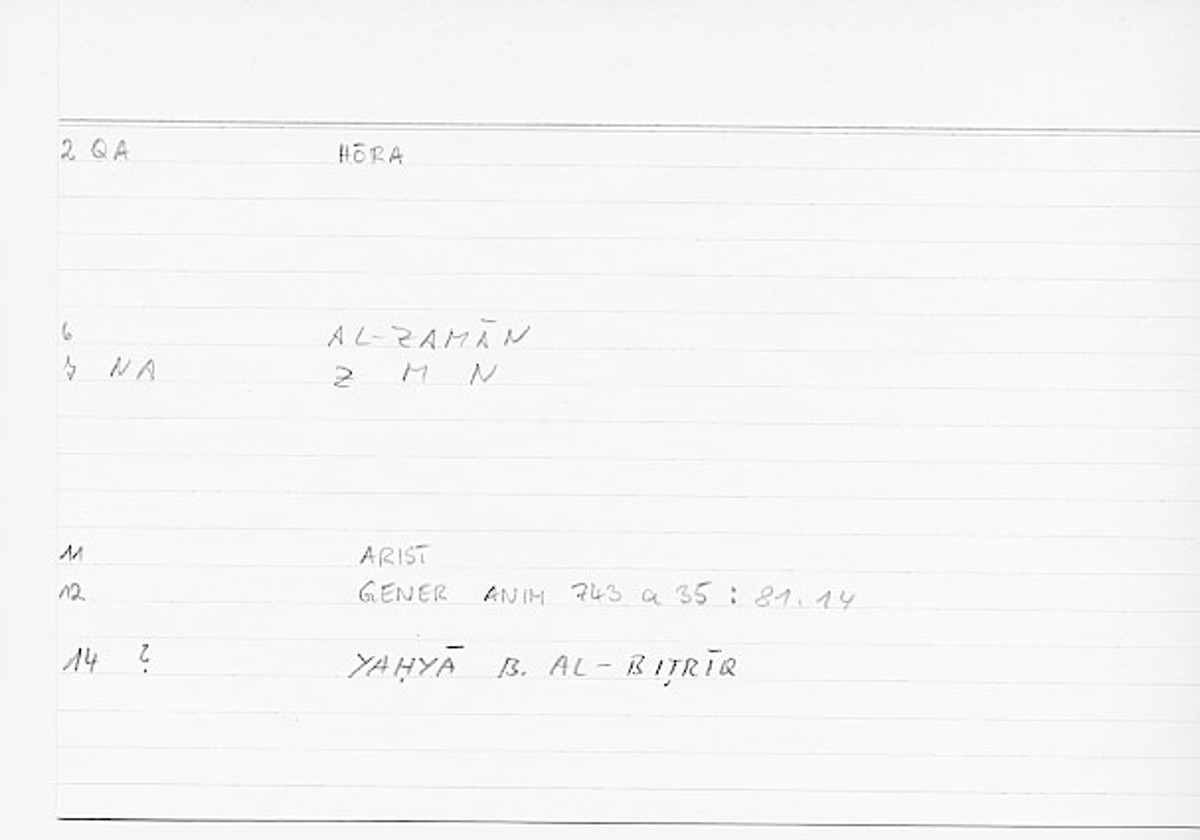 2 QA HŌRA
6 AL-ZAMĀN
7 NA Z M N
11 ARIST
12 GENER ANIM 743 a 35 : 81.14
14 ? YAḤYĀ B. AL-BIṬRĪQ